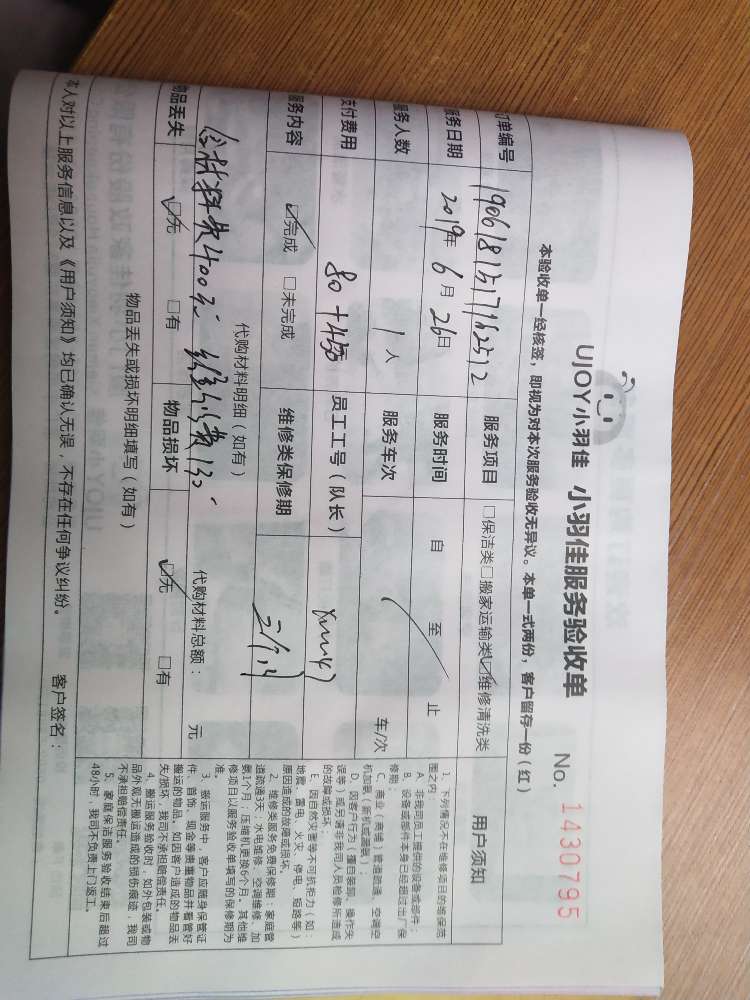 UJOY小羽佳 小羽佳服务验收单 No. 1430795
本验收单一经核签，即视为对本次服务验收无异议。本单一式两份，客户留存一份（红）
订单编号
服务项目 □保洁类□搬家运输类☑维修清洗类
服务日期 2019年 6月 26日 服务时间 自 至 止
服务人数 1人 服务车次 车/次
支付费用 员工工号（队长）
服务内容 ☑完成 □未完成 维修类保修期 三个月
代购材料明细（如有）
代购材料总额： 元
物品丢失 ☑无 □有 物品损坏 ☑无 □有
物品丢失或损坏明细填写（如有）
本人对以上服务信息以及《用户须知》均已确认无误，不存在任何争议纠纷。 客户签名：
用户须知
1、下列情况不在维修项目的维保范
围之内
A、非我司员工提供的设备或部件；
B、设备或部件本身已经超过出厂保
修期；
C、商业（商铺）管道疏通、空调空
机加氨（新机或漏氨）；
D、因客户行为（擅自装卸、操作失
误等）或另请非我司人员检修所造成
的故障或损坏；
E、因自然灾害等不可抗拒力（如：
地震、雷电、火灾、停电、短路等）
原因造成的故障或损坏。
2、维修类服务免费保修期：家庭管
道疏通3天；水电维修、空调维修、加
氨1个月；压缩机更换6个月。其他维
修项目以服务验收单填写的保修期为
准。
3、搬运服务中，客户应随身保管证
件、首饰、现金等贵重物品并看管好
搬运的物品。如因客户造成的物品丢
失/损坏，我司不承担赔偿责任。
4、搬运服务验收时，如外包装或物
品外观无搬运造成的损伤痕迹，我司
不承担赔偿责任。
5、家庭保洁服务验收结束后超过
48小时，我司不负责上门返工。